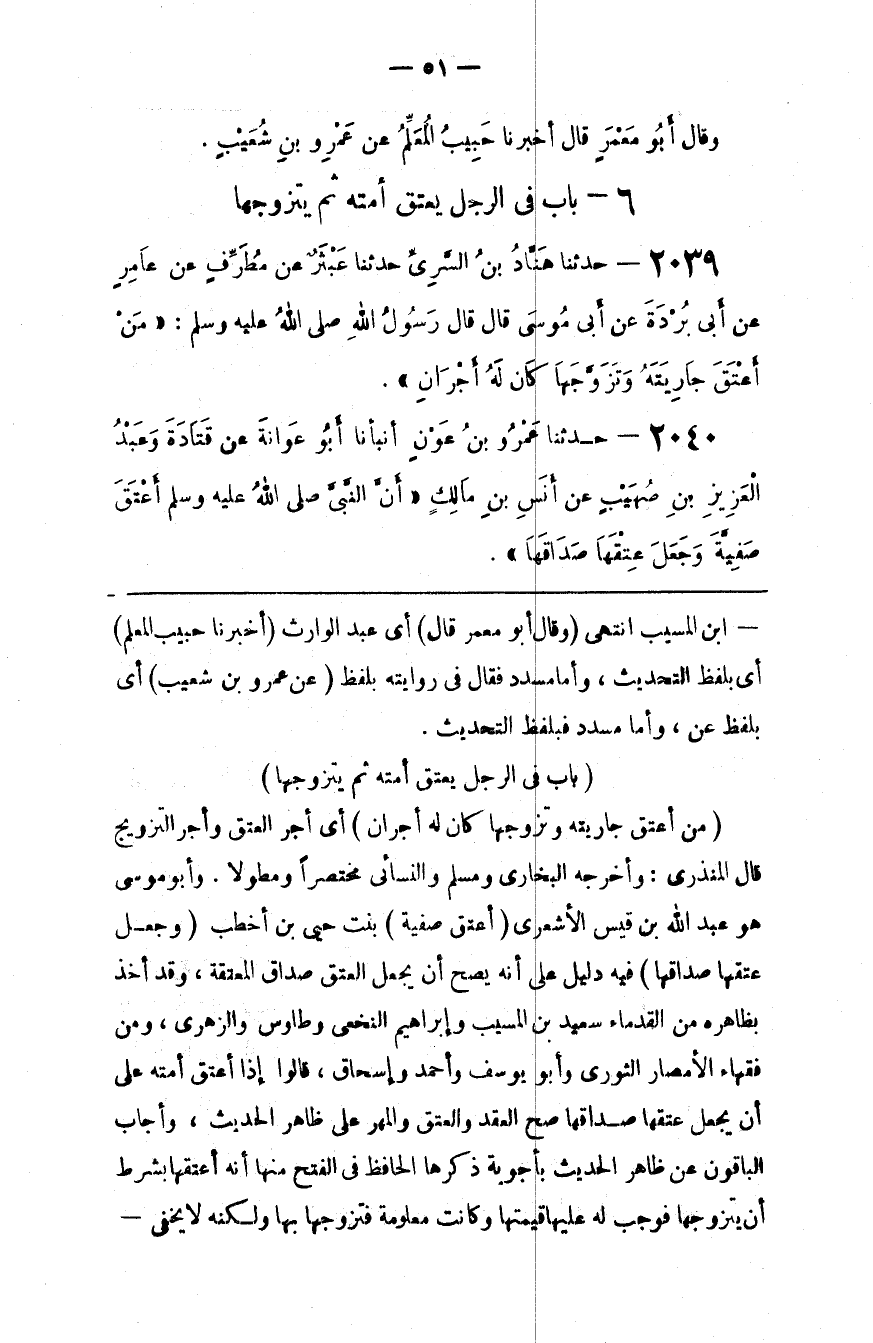 — ٥١ —
وقال أَبُو مَعْمَرٍ قال أخبرنا حَبِيبُ الْمُعَلِّمُ عن عَمْرِو بنِ شُعَيْبٍ .
٦ — باب فى الرجل يعتق أمته ثم يتزوجها
٢٠٣٩ — حدثنا هَنَّادُ بنُ السَّرِىِّ حدثنا عَبْثَرٌ عن مُطَرِّفٍ عن عاَمِرٍ
عن أَبى بُرْدَةَ عن أَبى مُوسَى قال قال رَسُولُ اللهِ صلى اللهُ عليه وسلم : « مَنْ
أَعْتَقَ جاَرِيَتَهُ وَتَزَوَّجَهاَ كاَن لَهُ أَجْرَانِ » .
٢٠٤٠ — حدثنا عَمْرُو بنُ عَوْنٍ أنبأنا أَبُو عَوَانةَ عن قَتَادَةَ وَعَبْدُ
الْعَزِيزِ بنِ صُهَيْبٍ عن أَنَسِ بنِ ماَلِكٍ « أَنَّ النَّبىَّ صلى اللهُ عليه وسلم أَعْتَقَ
صَفِيَّةَ وَجَعَلَ عِتْقَهاَ صَدَاقَهاَ » .
— ابن المسيب انتهى (وقال أبو معمر قال) أى عبد الوارث (أخبرنا حبيب المعلم)
أى بلفظ التحديث ، وأما مسدد فقال فى روايته بلفظ ( عن عمرو بن شعيب) أى
بلفظ عن ، وأما مسدد فبلفظ التحديث .
( باب فى الرجل يعتق أمته ثم يتزوجها )
( من أعتق جاريته وتزوجها كان له أجران ) أى أجر العتق وأجر التزويج
قال المنذرى : وأخرجه البخارى ومسلم والنسائى مختصراً ومطولا . وأبو موسى
هو عبد الله بن قيس الأشعرى ( أعتق صفية ) بنت حيى بن أخطب ( وجعل
عتقها صداقها ) فيه دليل على أنه يصح أن يجعل العتق صداق المعتقة ، وقد أخذ
بظاهره من القدماء سعيد بن المسيب وإبراهيم النخعى وطاوس والزهرى ، ومن
فقهاء الأمصار الثورى وأبو يوسف وأحمد وإسحاق ، قالوا إذا أعتق أمته على
أن يجعل عتقها صداقها صح العقد والعتق والمهر على ظاهر الحديث ، وأجاب
الباقون عن ظاهر الحديث بأجوبة ذكرها الحافظ فى الفتح منها أنه أعتقها بشرط
أن يتزوجها فوجب له عليها قيمتها وكانت معلومة فتزوجها بها ولكنه لا يخفى —